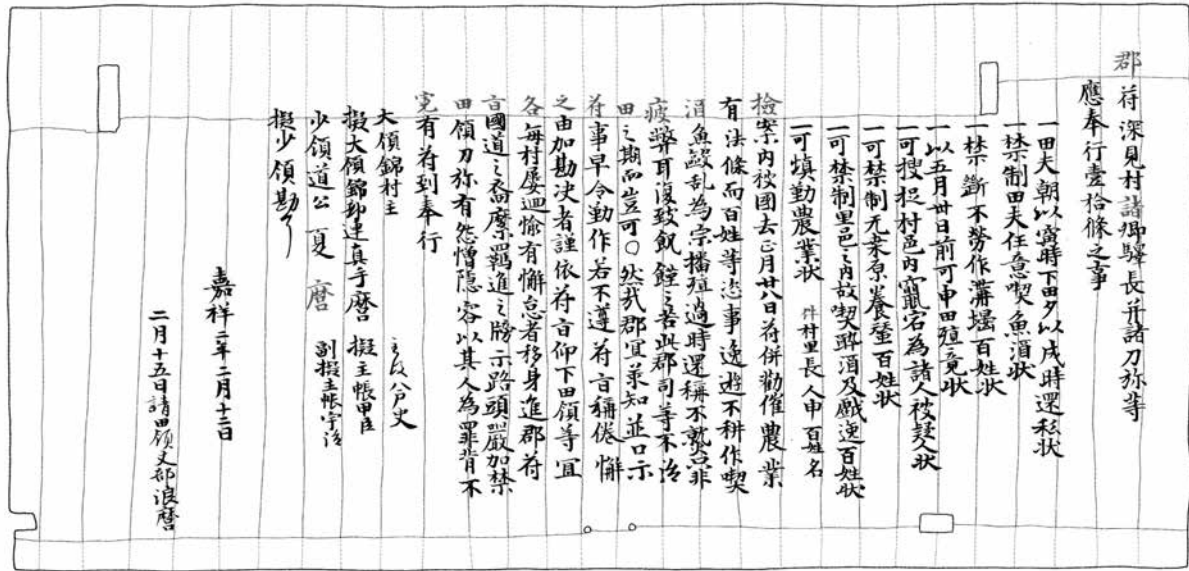 郡符深見村諸郷驛長并諸刀祢等
應奉行壹拾條之事
一田夫朝以寅時下田夕以戌時還私状
一禁制田夫任意喫魚酒状
一禁断不勞作溝堰百姓状
一以五月卅日前可申田殖竟状
一可捜捉村邑内竄宕為諸人被疑人状
一可禁制无桒原養蚕百姓状
一可禁制里邑之内故喫酔酒及戯逸百姓状
一可填勤農業状 件村里長人申百姓名
檢案内被國去正月廿八日符併勸催農業
有法條而百姓等恣事逸遊不耕作喫
酒魚殴乱為宗播殖過時還稱不熟只非
疲弊耳復致飢饉之苦此郡司等不治
田之期而豈可○然哉郡冝承知並口示
符事早令勤作若不遵符旨稱倦懈
之由加勘决者謹依符旨仰下田領等冝
各毎村屡廻愉有懈怠者移身進郡符
旨國道之裔縻羈進之牓示路頭嚴加禁
田領刀祢有怨憎隠容以其人為罪背不
寛有符到奉行
大領錦村主 主政八戸史
擬大領錦部連真手麿 擬主帳甲臣
少領道公 夏 麿 副擬主帳宇治
擬少領勘了
嘉祥二年二月十二日
二月十五日請田領丈部浪麿